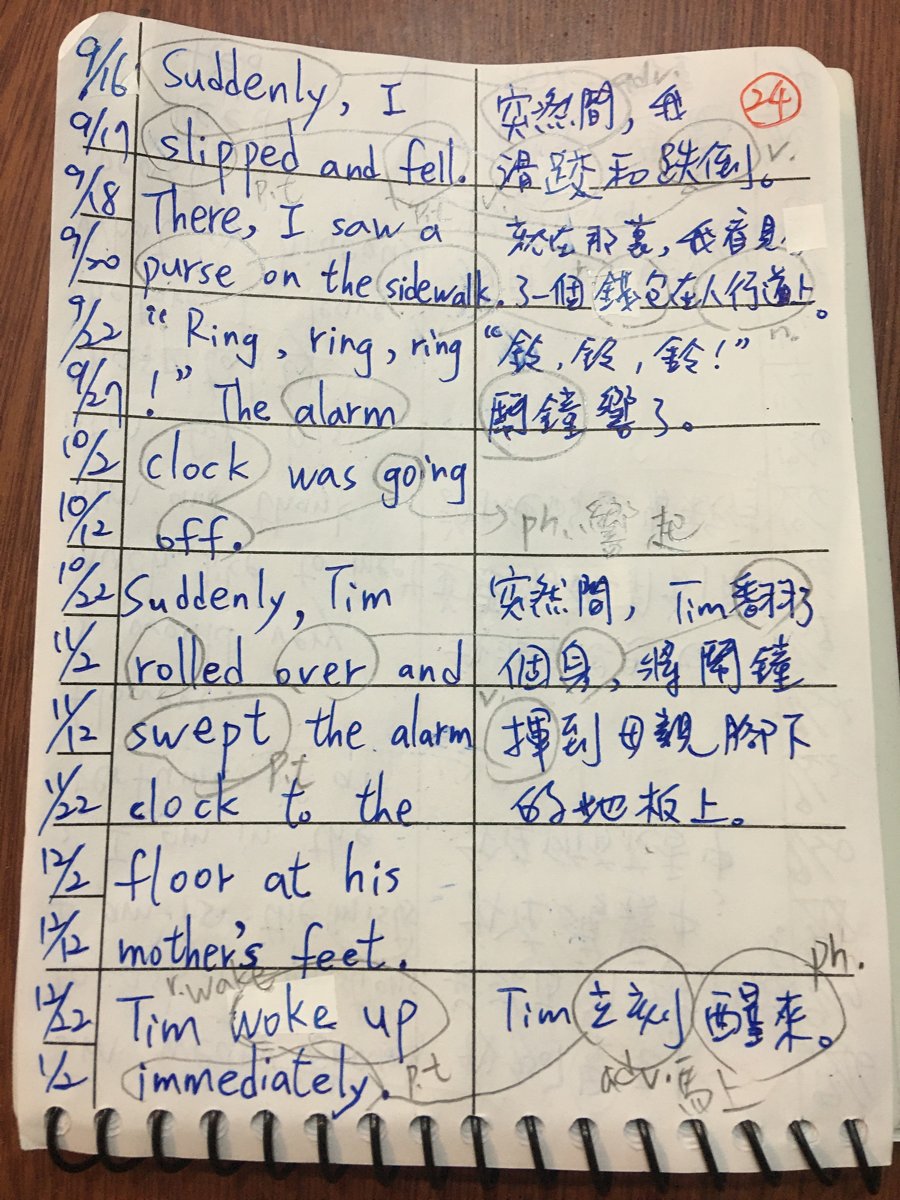 9/16 Suddenly, I 突然間，我 adv. 24
9/17 slipped and fell. 滑跤和跌倒。 v.
p.t p.t v.
9/18 There, I saw a 就在那裏，我看見
9/20 purse on the sidewalk. 了一個錢包在人行道上。
n.
9/22 "Ring, ring, ring "鈴，鈴，鈴！"
9/27 !" The alarm 鬧鐘響了。
10/2 clock was going
10/12 off. ph. 響起
10/22 Suddenly, Tim 突然間，Tim翻了
11/2 rolled over and 個身，將鬧鐘
v.
11/12 swept the alarm 揮到母親腳下
p.t
11/22 clock to the 的地板上。
12/2 floor at his
12/12 mother's feet.
r. wake ph.
12/22 Tim woke up Tim立刻醒來。
1/2 immediately. p.t adv. 馬上